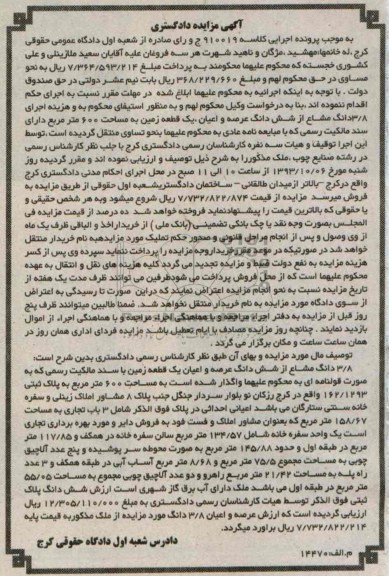 آگهی مزایده دادگستری
به موجب پرونده اجرایی کلاسه ۹۱۰۰۱۹ ج و رای صادره از شعبه اول دادگاه عمومی حقوقی
کرج ،له خانمها:مهشید ،مژگان و ناهید شهرت هر سه فروغان علیه آقایان سعید ملازینلی و علی
کشوری خجسته که محکوم علیهما محکومند به پرداخت مبلغ ۷/۳۶۴/۵۹۳/۲۱۴ ریال به نحو
مساوی در حق محکوم لهم و مبلغ ۳۶۸/۲۲۹/۶۶۰ ریال بابت نیم عشر دولتی در حق صندوق
دولت . با توجه به اینکه اجرائیه به محکوم علیهما ابلاغ شده در مهلت مقرر نسبت به اجرای حکم
اقدام ننموده اند ،بنا به درخواست وکیل محکوم لهم و به منظور استیفای محکوم به و هزینه اجرای
۳/۸دانگ مشاع از شش دانگ عرصه و اعیان ،یک قطعه زمین به مساحت ۶۰۰ متر مربع دارای
سند مالکیت رسمی که با مبایعه نامه عادی به محکوم علیهما بنحو تساوی منتقل گردیده است ،توسط
این اجرا توقیف و هیات سه نفره کارشناسان رسمی دادگستری کرج با جلب نظر کارشناس رسمی
در رشته صنایع چوب ،ملک مذکوررا به شرح ذیل توصیف و ارزیابی نموده اند و مقرر گردیده روز
شنبه مورخ ۱۳۹۳/۱۰/۰۶ از ساعت ۱۰ الی ۱۱ صبح در محل اجرای احکام مدنی دادگستری کرج
واقع درکرج –بالاتر ازمیدان طالقانی – ساختمان دادگستریشعبه اول حقوقی از طریق مزایده به
فروش میرسد مزایده از قیمت ۷/۷۳۲/۸۲۲/۸۷۴ ریال شروع میشود وبه هر شخص حقیقی و
یا حقوقی که بالاترین قیمت را پیشنهادنماید فروخته خواهد شد ده درصد از قیمت مزایده فی
المجلس بصورت وجه نقد یا چک بانکی تضمینی(بانک ملی ) از خریداراخذ و الباقی ظرف یک ماه
از وی وصول و پس از انجام مراحل قانونی و صدور حکم تملیک مورد مزایدهبه نام خریدار منتقل
خواهد شد در صورتیکه در موعد مقرر خریداروجه مزایده را پرداخت ننماید سپرده وی پس از کسر
هزینه مزایده به نفع دولت ضبط و مزایده تجدید می گردد کلیه هزینه های نقل و انتقال به عهده
محکوم علیهما است که از محل فروش پرداخت می شودطرفین می توانند ظرف مدت یک هفته از
تاریخ مزایده نسبت به نحو انجام مزایده اعتراض نمایند که دراین صورت تا رسیدگی به اعتراض
از سوی دادگاه مورد مزایده به نام خریدار منتقل نخواهد شد. ضمنا طالبین میتوانند ظرف پنج
روز قبل از مزایده به دفتر اجراء مراجعه و با هماهنگی اجراء مراجعه و با هماهنگی اجراء از اموال
بازدید نمایند . چنانچه روز مزایده مصادف با ایام تعطیل باشد مزایده فردای اداری همان روز در
همان ساعت ساعت و مکان برگزار می گردد .
توصیف مال مورد مزایده و بهای آن طبق نظر کارشناس رسمی دادگستری بدین شرح است:
۳/۸ دانگ مشاع از شش دانگ عرصه و اعیان یک قطعه زمین با سند مالکیت رسمی که به
صورت قولنامه ای به محکوم علیهما واگذار شده است به مساحت ۶۰۰ متر مربع به پلاک ثبتی
۱۶۲/۱۲۹۳ واقع در کرج رزکان نو بلوار سردار جنگل جنب پلاک ۸ مشاور املاک زینلی و سفره
خانه سنتی ستارگان می باشد اعیانی احداثی در پلاک فوق الذکر شامل ۳ باب تجاری به مساحت
۱۵۸/۶۷ متر مربع که بعنوان مشاور املاک و فست فود به فروش دایر و مورد بهره برداری تجاری
است یک واحد سفره خانه شامل ۱۳۴/۵۷ متر مربع سالن سفره خانه در همکف و ۱۱۷/۸۵ متر
مربع در طبقه اول و حدود ۱۴۵/۸۸ متر مربع به صورت محوطه سر پوشیده و پنج عدد آلاچیق
چوبی به مساحت مجموع ۷۵/۵ متر مربع و ۸/۶۸ متر مربع آسیاب آبی در طبقه همکف و ۳ عدد
راه پله به مساحت ۲۱/۴۲ متر مربع راهرو و دو عدد آلاچیق چوبی مجموع به مساحت ۵۵/۰۵
متر مربع در طبقه اول می باشد ملک دارای آب برق گاز شهری است ارزش شش دانگ پلاک
ثبتی فوق الذکر توسط هیات کارشناسان رسمی دادگستری به مبلغ ۱۲/۳۰۵/۱۱۰/۰۰۰ ریال
ارزیابی گردیده است که ارزش عرصه و اعیان ۳/۸ دانگ مورد مزایده از ملک مذکوربه قیمت پایه
۷/۷۳۲/۸۲۲/۲۱۴ ریال براورد میگردد.
دادرس شعبه اول دادگاه حقوقی کرج
م.الف:۱۴۴۷۰